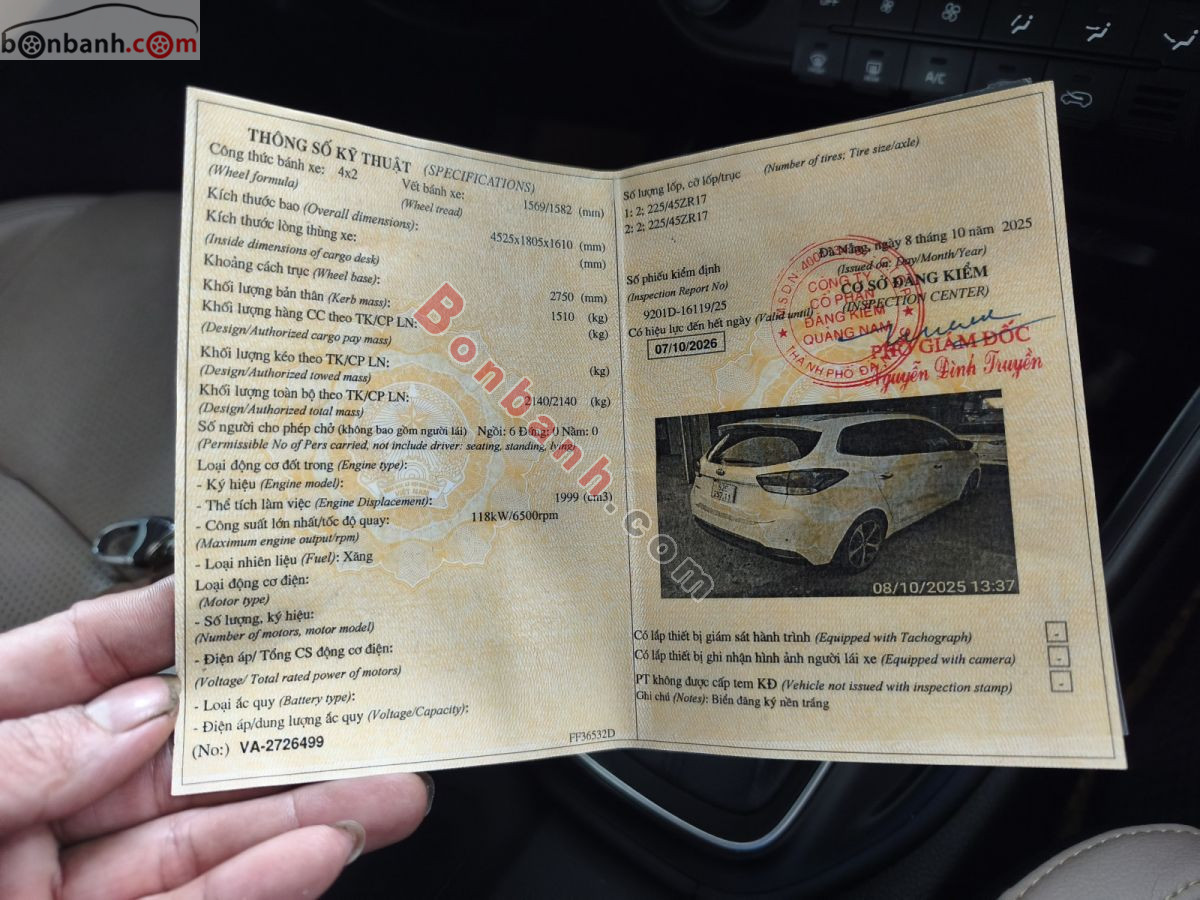 bonbanh.com
A/C
THÔNG SỐ KỸ THUẬT (SPECIFICATIONS)
Công thức bánh xe: 4x2 Vết bánh xe: 1569/1582 (mm)
(Wheel formula) (Wheel tread)
Kích thước bao (Overall dimensions): 4525x1805x1610 (mm)
Kích thước lòng thùng xe: (mm)
(Inside dimensions of cargo desk)
Khoảng cách trục (Wheel base): 2750 (mm)
Khối lượng bản thân (Kerb mass): 1510 (kg)
Khối lượng hàng CC theo TK/CP LN: (kg)
(Design/Authorized cargo pay mass)
Khối lượng kéo theo TK/CP LN: (kg)
(Design/Authorized towed mass)
Khối lượng toàn bộ theo TK/CP LN: 2140/2140 (kg)
(Design/Authorized total mass)
Số người cho phép chở (không bao gồm người lái) Ngồi: 6 Đứng: 0 Nằm: 0
(Permissible No of Pers carried, not include driver: seating, standing, lying)
Loại động cơ đốt trong (Engine type):
- Ký hiệu (Engine model):
- Thể tích làm việc (Engine Displacement): 1999 (cm3)
- Công suất lớn nhất/tốc độ quay: 118kW/6500rpm
(Maximum engine output/rpm)
- Loại nhiên liệu (Fuel): Xăng
Loại động cơ điện:
(Motor type)
- Số lượng, ký hiệu:
(Number of motors, motor model)
- Điện áp/ Tổng CS động cơ điện:
(Voltage/ Total rated power of motors)
- Loại ắc quy (Battery type):
- Điện áp/dung lượng ắc quy (Voltage/Capacity):
(No:) VA-2726499
FF36532D
Số lượng lốp, cỡ lốp/trục (Number of tires; Tire size/axle)
1: 2; 225/45ZR17
2: 2; 225/45ZR17
Đà Nẵng, ngày 8 tháng 10 năm 2025
(Issued on: Day/Month/Year)
Số phiếu kiểm định
(Inspection Report No)
CƠ SỞ ĐĂNG KIỂM
(INSPECTION CENTER)
9201D-16119/25
Có hiệu lực đến hết ngày (Valid until)
07/10/2026
CÔNG TY
CỔ PHẦN
ĐĂNG KIỂM
QUẢNG NAM
PHÓ GIÁM ĐỐC
Nguyễn Đình Truyền
08/10/2025 13:37
Có lắp thiết bị giám sát hành trình (Equipped with Tachograph) -
Có lắp thiết bị ghi nhận hình ảnh người lái xe (Equipped with camera) -
PT không được cấp tem KĐ (Vehicle not issued with inspection stamp) -
Ghi chú (Notes): Biển đăng ký nền trắng
Bonbanh.com